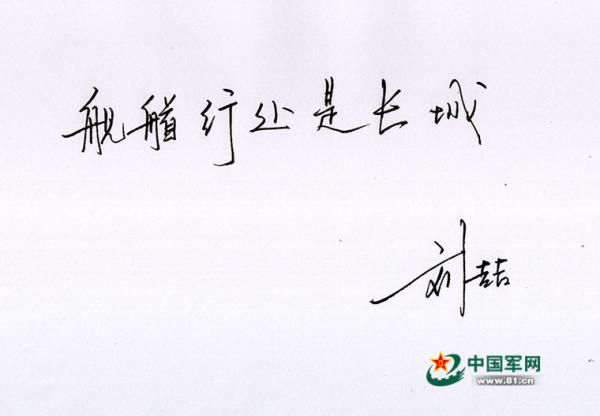 舰艏行处是长城
刘喆
中国军网
www.81.cn